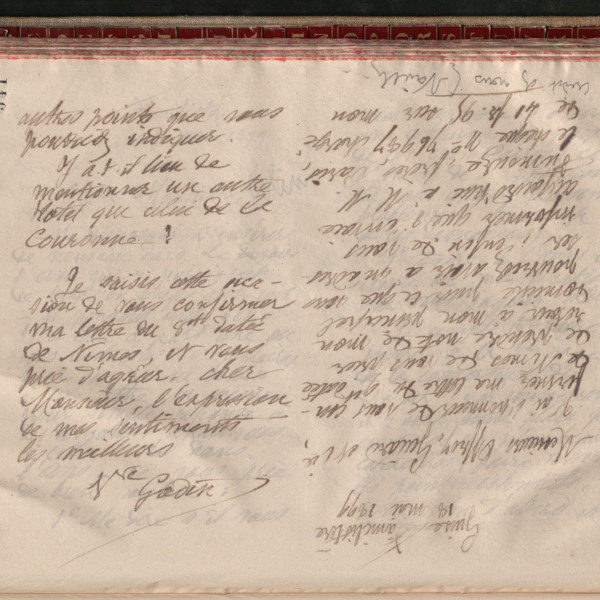 autres points que vous
pourriez indiquer.
Y a-t-il lieu de
mentionner un autre
Hôtel que celui de la
Couronne ?
Je saisis cette occa-
sion de vous confirmer
ma lettre du 8 ct datée
de Nîmes, et vous
prie d'agréer, cher
Monsieur, l'expression
de mes sentiments
les meilleurs
Vve Godin
Guise
Familistère
13 mai 1899
Messieurs Offroy, Guiard et Cie,
J'ai l'honneur de vous con-
firmer ma lettre du 8 ct datée
de Nîmes de vous prier
de prendre note de mon
retour à mon principal
domicile puis ce que vous
pourriez avoir à m'adres
ser ; enfin de vous
informer que j'envoie
aujourd'hui à M. M.
frères, Paris,
le chèque No 76957 chargé
de 41 fr. 95 sur mon